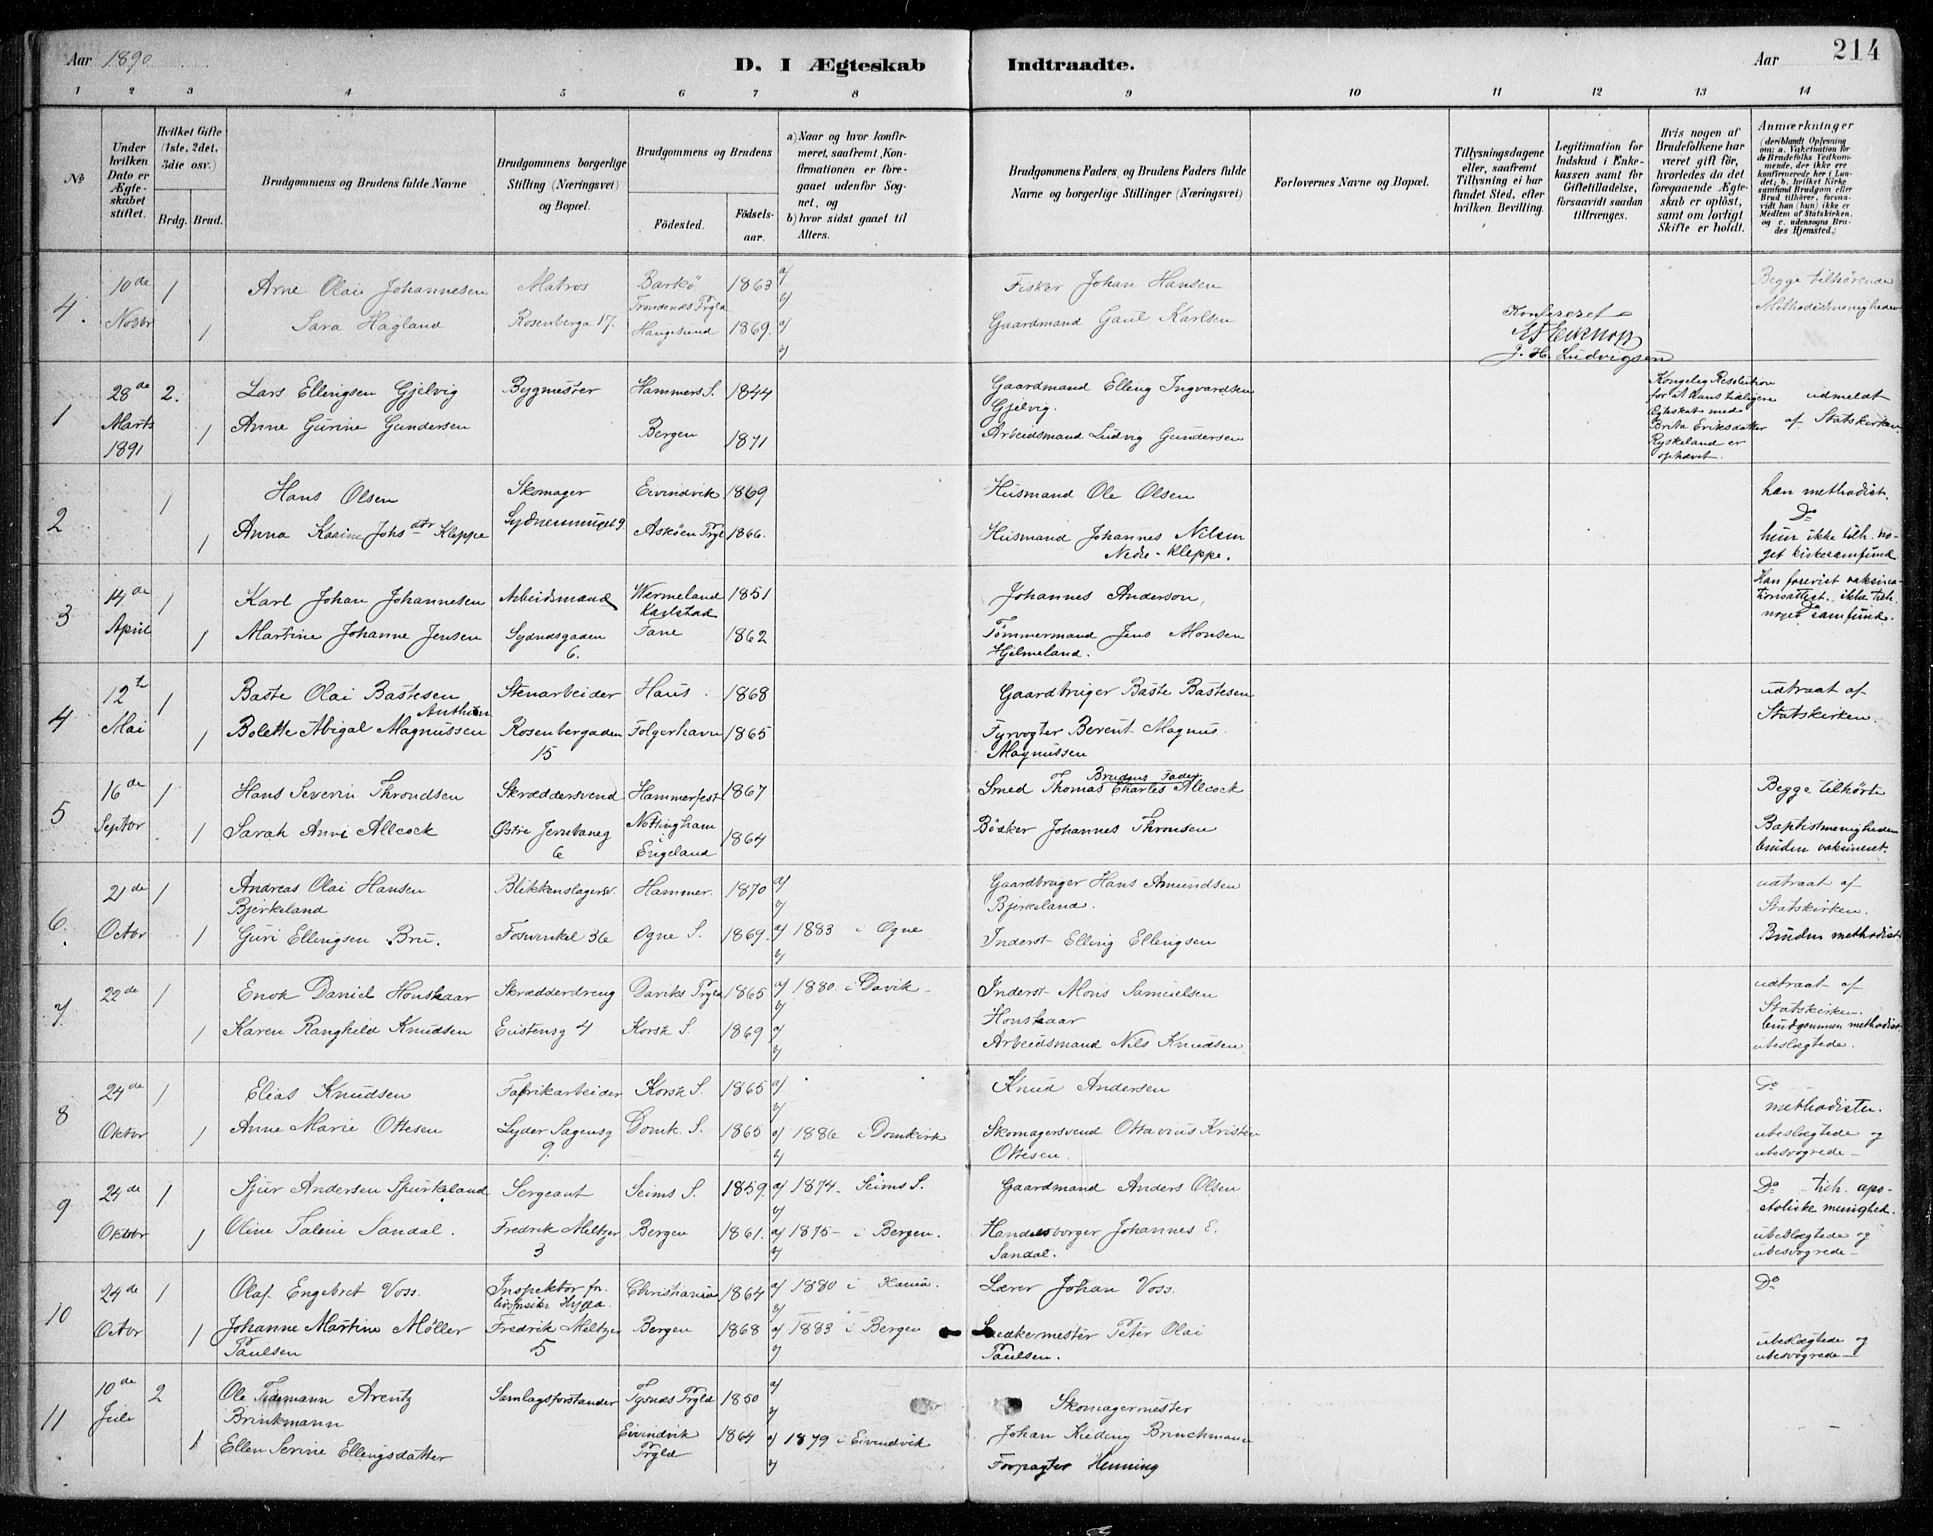 Aar 1890
D. I Ægteskab
Indtraadte.
Aar
214
1 2 3 4 5 6 7 8 9 10 11 12 13 14
No
Under hvilken Dato er Ægteskabet stiftet.
Hvilket Gifte (1ste, 2det, 3die osv.)
Brdg. Brud.
Brudgommens og Brudens fulde Navne
Brudgommens borgerlige Stilling (Næringsvei) og Bopæl.
Brudgommens og Brudens
Fødested.
Fødselsaar.
a) Naar og hvor konfirmeret, saafremt Konfirmationen er foregaaet udenfor Sognet, og
b) hvor sidst gaaet til Alters.
Brudgommens Faders, og Brudens Faders fulde Navne og borgerlige Stillinger (Næringsvei)
Forlovernes Navne og Bopæl.
Tillysningsdagene eller, saafremt Tillysning ei har fundet Sted, efter hvilken Bevilling.
Legitimation for Indskud i Enkekassen samt for Giftetilladelse, forsaavidt saadan tiltrænges.
Hvis nogen af Brudefolkene har været gift før, hvorledes da det foregaaende Ægteskab er opløst, samt om lovligt Skifte er holdt.
Anmærkninger
(deriblandt Oplysning om: a. Vakcination for de Brudefolks Vedkommende, der ikke ere konfirmerede her i Landet; b. hvilket Kirkesamfund Brudgom eller Brud tilhører, forsaavidt han (hun) ikke er Medlem af Statskirken, og c. udensogns Brudes Hjemsted.)
4. 10de Novbr 1 Arne Olai Johannesen Matros Barkö 1863 a/ Fisker Johan Hansen Begge tilhørende
Trondenæs Prgld b/ Methodistmenigheden
1 Sara Hagland Rosenberga 17. Haugesund 1869. a/ Gaardmand Gaul Karlsen
b/
Konfereret
J. H. Ludvigsen
1 28de Marts 1891 2. Lars Ellingsen Gjelvig Bygmester Hammers S. 1844 Gaardmand Elling Ingvardsen Gjelvig.
Kongelig Resolution for at Hans tidligere Ægteskab med Brita Eriksdatter Ryskeland er ophævet.
udmeldt af Statskirken.
1 Anne Gurine Gundersen Bergen 1871 Arbeidsmand Ludvig Gundersen
2 1 Hans Olsen Skomager Eivindvik 1869 Husmand Ole Olsen han methodist.
Do
1 Anna Karine Johs dtr Kleppe Sydnessmuget 9 Askøen Prgl 1866. Husmand Johannes Nilsen Nedre-Kleppe. hun ikke tilh. noget kirkesamfund
3 14de April 1 Karl Johan Johannesen Arbeidsmand Wærmeland Karlstad 1851 Johannes Anderson, Han forevist vaksinationsattest. ikke tilh. noget samfund.
Do
1 Martine Johanne Jensen Sydnæsgaden 6. Fane 1862 Tømmermand Jens Monsen Hjelmeland.
4 12te Mai 1 Baste Olai Bastesen Stenarbeider Haus. 1868 Gaardbruger Baste Bastesen udtraat af Statskirken.
1 Bolette Abigal Magnussen Rosenbergaden 15 Folgerhavn 1865 Fyrvogter Berent Magnus Magnussen
5 16de Septbr 1 Hans Severin Throndsen Skræddersvend Hammerfest 1867 Smed Thomas Charles Allcock Begge tilhørte
Brudens Fader
1 Sarah Anne Allcock Østre Jernbaneg 6 Nottingham i England 1864 Bødker Johannes Thronsen Baptistmenigheden bruden vaksineret.
6. 21de Octbr 1 Andreas Olai Hansen Bjerkeland Blikkenslagersv. Hammer. 1870 a/ Gaardbruger Hans Amundsen Bjerkeland. udtraat af Statskirken.
b/
1 Guri Ellingsen Bru. Fosvinkel 36 Ogne S. 1869. a/ 1883 i Ogne Inderst Elling Ellingsen Bruden methodist
b/
7. 22de 1 Enok Daniel Honskaar Skrædderdreng Daviks Prgld 1865 a/ 1880 i Davik Inderst Mons Samuelsen Honskaar udtraat af Statskirken. brudgommen methodist
b/
1 Karen Ranghild Knudsen Enstensg 4 Korsk S. 1869 a/ Arbeidsmand Nils Knudsen ubeslægtede.
b/
8 24de Oktbr 1 Elias Knudsen Fabrikarbeider Korsk S. 1865 a/ Knud Andersen Do methodister.
b/
1 Anne Marie Ottesen Lyder Sagensg 9. Domk. S. 1865 a/ 1886 i Domkirk Skomagersvend Ottavius Kristen Ottesen. ubeslægtede og ubesvogrede
b/
9 24de Oktbr 1 Sjur Andersen Spurkeland Sergeant Seims S. 1859. a/ 1874 Seims S. Gaardmand Anders Olsen Do tilh. apostoliske menighed.
b/
1 Oline Salene Sandal. Fredrik Meltzer 3 Bergen 1861. a/ 1875 i Bergen. Handelsborger Johannes E. Sandal. ubeslægtede og ubesvogrede
b/
10 24de Octbr 1 Olaf Engebret Voss. Inspektor for Christiania 1864 a/ 1880 i Xania. Lærer Johan Voss. Do
b/
1 Johanne Martine Møller Paulsen Fredrik Meltzer 5 Bergen 1868 a/ 1883 i Bergen Snedkermester Peter Olai Paulsen. ubeslægtede og ubesvogrede
b/
11 10de Juli 2 Ole Tidemann Arentz Brinkmann Samlagsforstander Tysnæs Prgld 1850 a/ Skomagermester
b/ Johan Kieding Bruchmann
1 Ellen Serine Ellingsdatter Eivindvik Prgld 1864 a/ 1879 i Eivindvik Forpagter Henning
b/